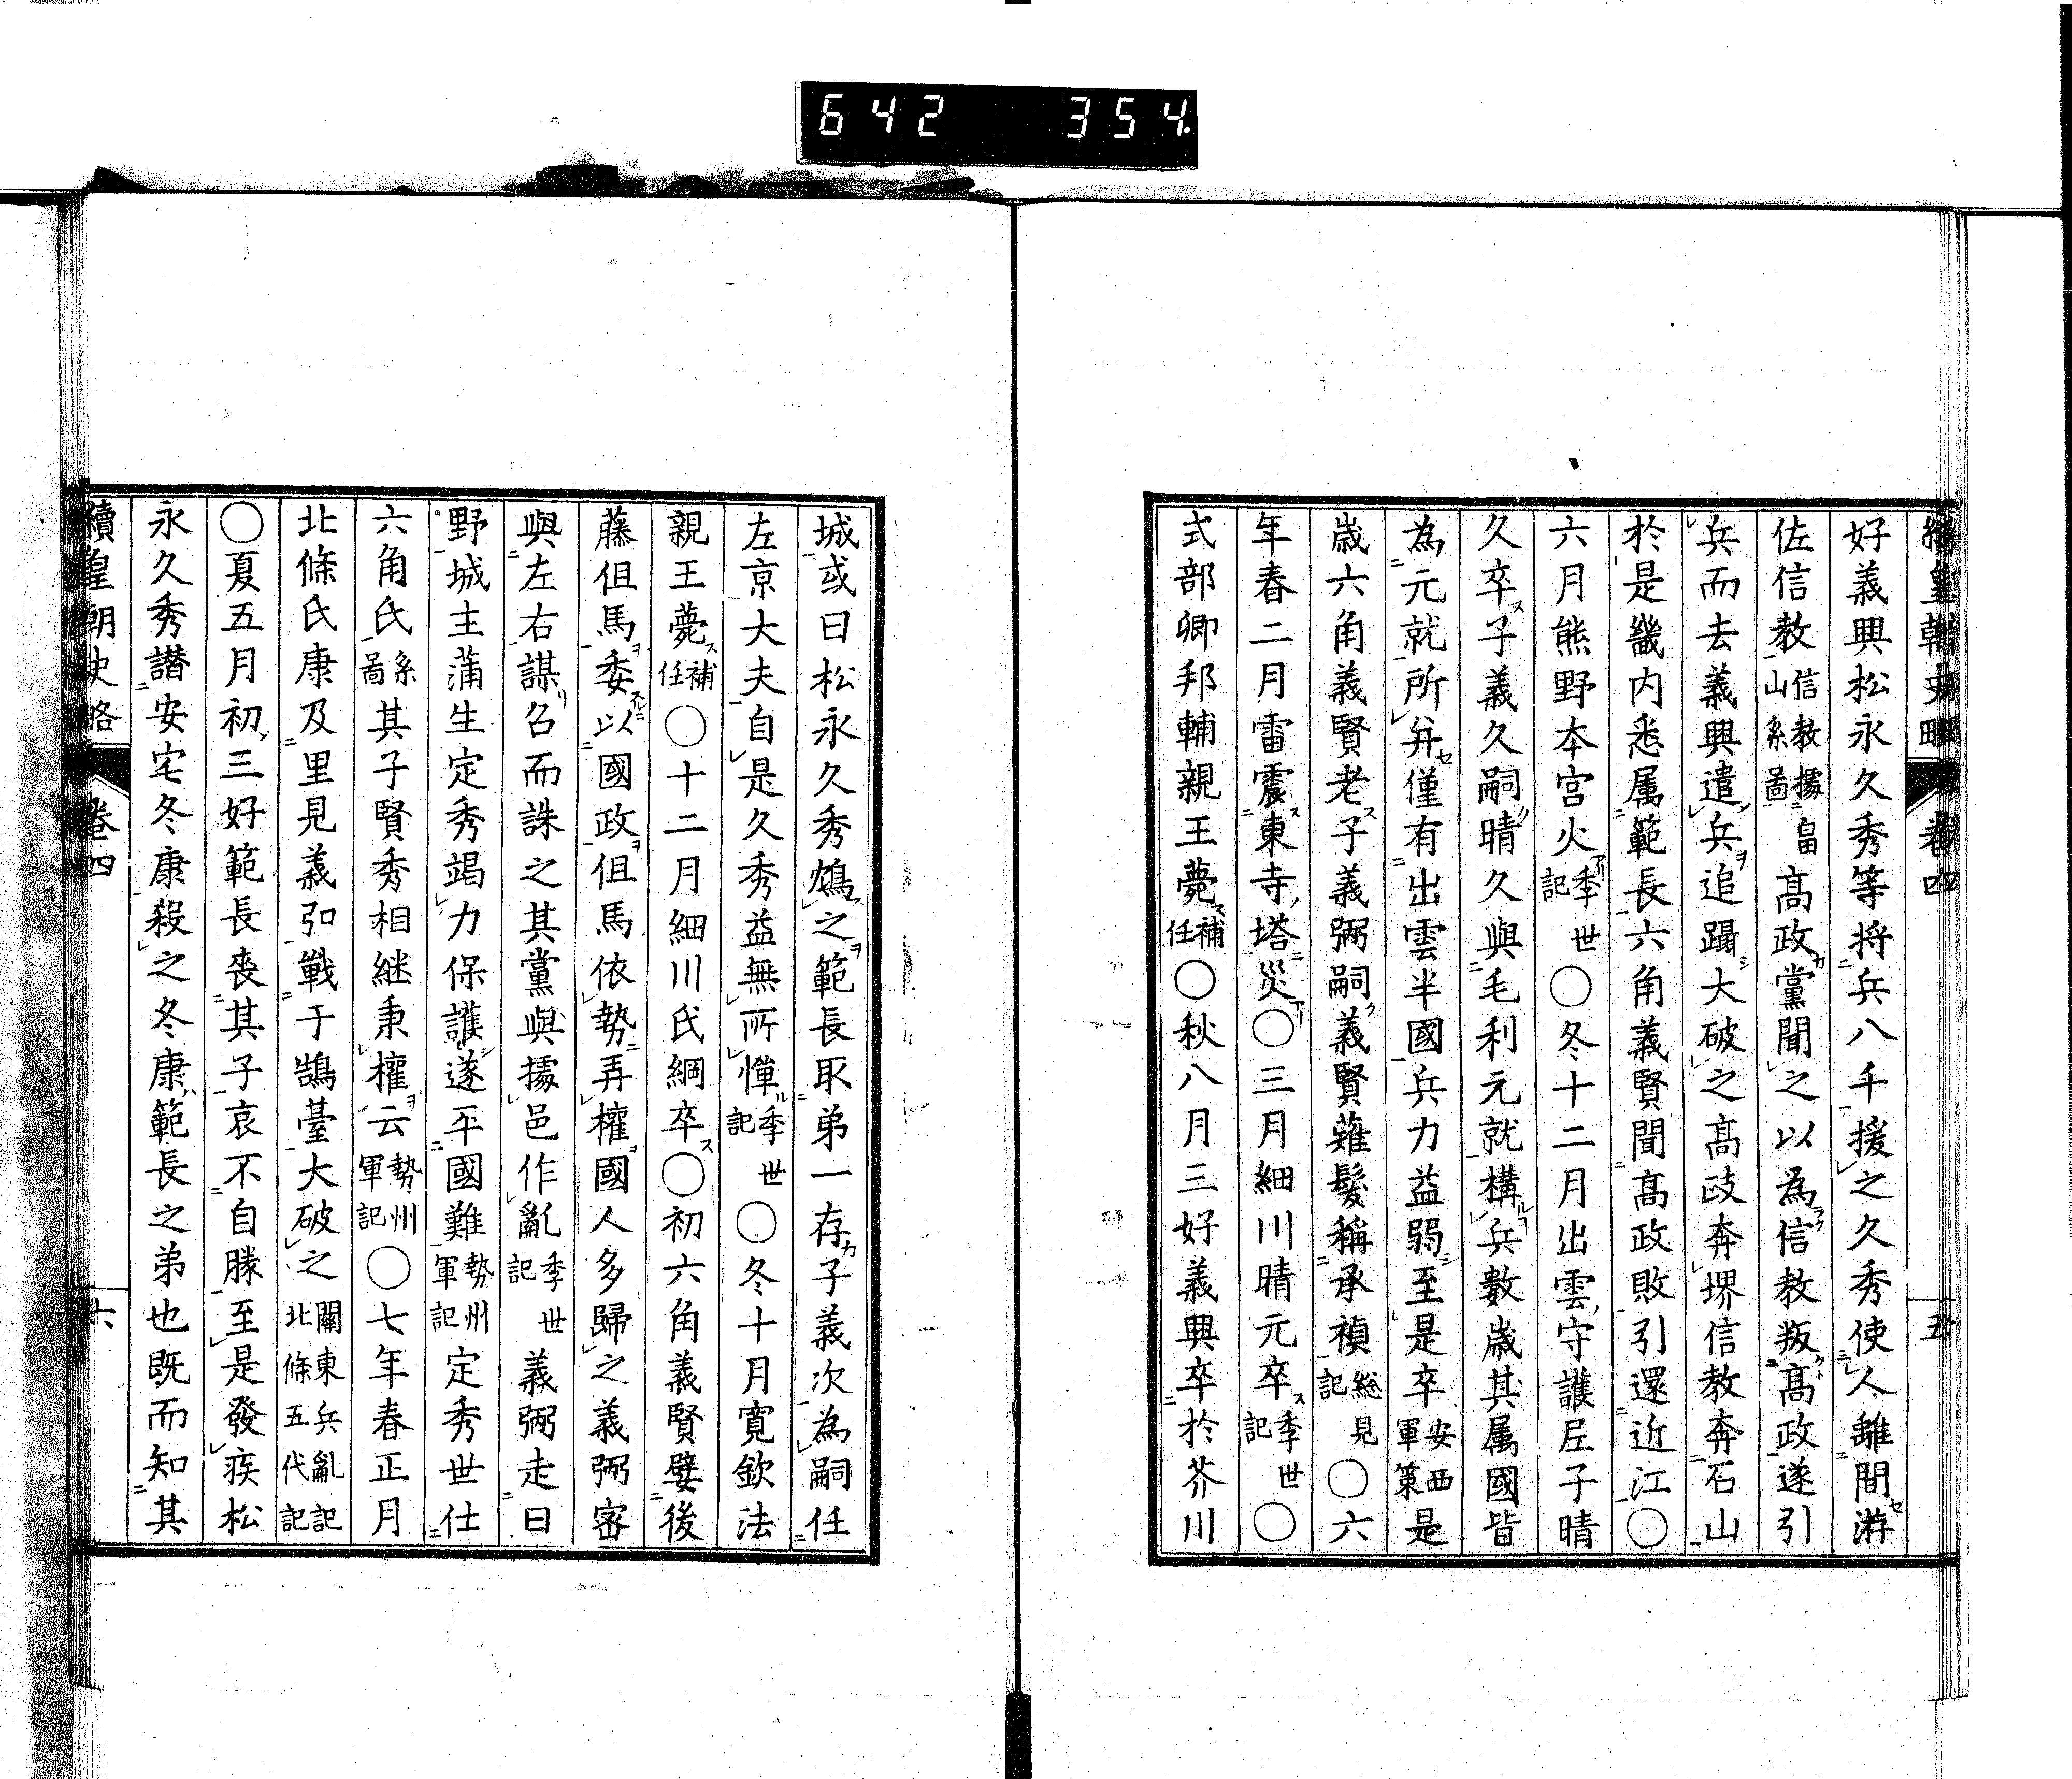 642 354.
續皇朝史略 卷四 五
好義興松永久秀等将兵八千援之久秀使人離間游
佐信教信教據畠山系啚高政黨聞之以為信教叛高政遂引
兵而去義興遣兵追躡大破之髙政奔堺信教奔石山
於是畿内悉属範長六角義賢聞髙政敗引還近江〇
六月熊野本宮火季世記〇冬十二月出雲守護尼子晴
久卒子義久嗣晴久與毛利元就構兵數歳其属國皆
為元就所弁僅有出雲半國兵力益弱至是卒安西軍策是
歳六角義賢老子義弼嗣義賢薙髮稱承禎總見記〇六
年春二月雷震東寺塔災〇三月細川晴元卒季世記〇
式部卿邦輔親王薨補任〇秋八月三好義興卒於芥川
城或曰松永久秀鴆之範長取弟一存子義次為嗣任
左京大夫自是久秀益無所憚季世記〇冬十月寛欽法
親王薨補任〇十二月細川氏綱卒〇初六角義賢嬖後
藤但馬委以國政但馬依勢弄權國人多歸之義弼密
與左右謀召而誅之其黨與據邑作亂季世記義弼走日
野城主蒲生定秀竭力保護遂平國難勢州軍記定秀世仕
六角氏系啚其子賢秀相継秉權云勢州軍記〇七年春正月
北條氏康及里見義弘戰于鵠臺大破之關東兵亂記北條五代記
〇夏五月初三好範長喪其子哀不自勝至是發疾松
永久秀譖安宅冬康殺之冬康範長之弟也既而知其
續皇朝史略 卷四 六